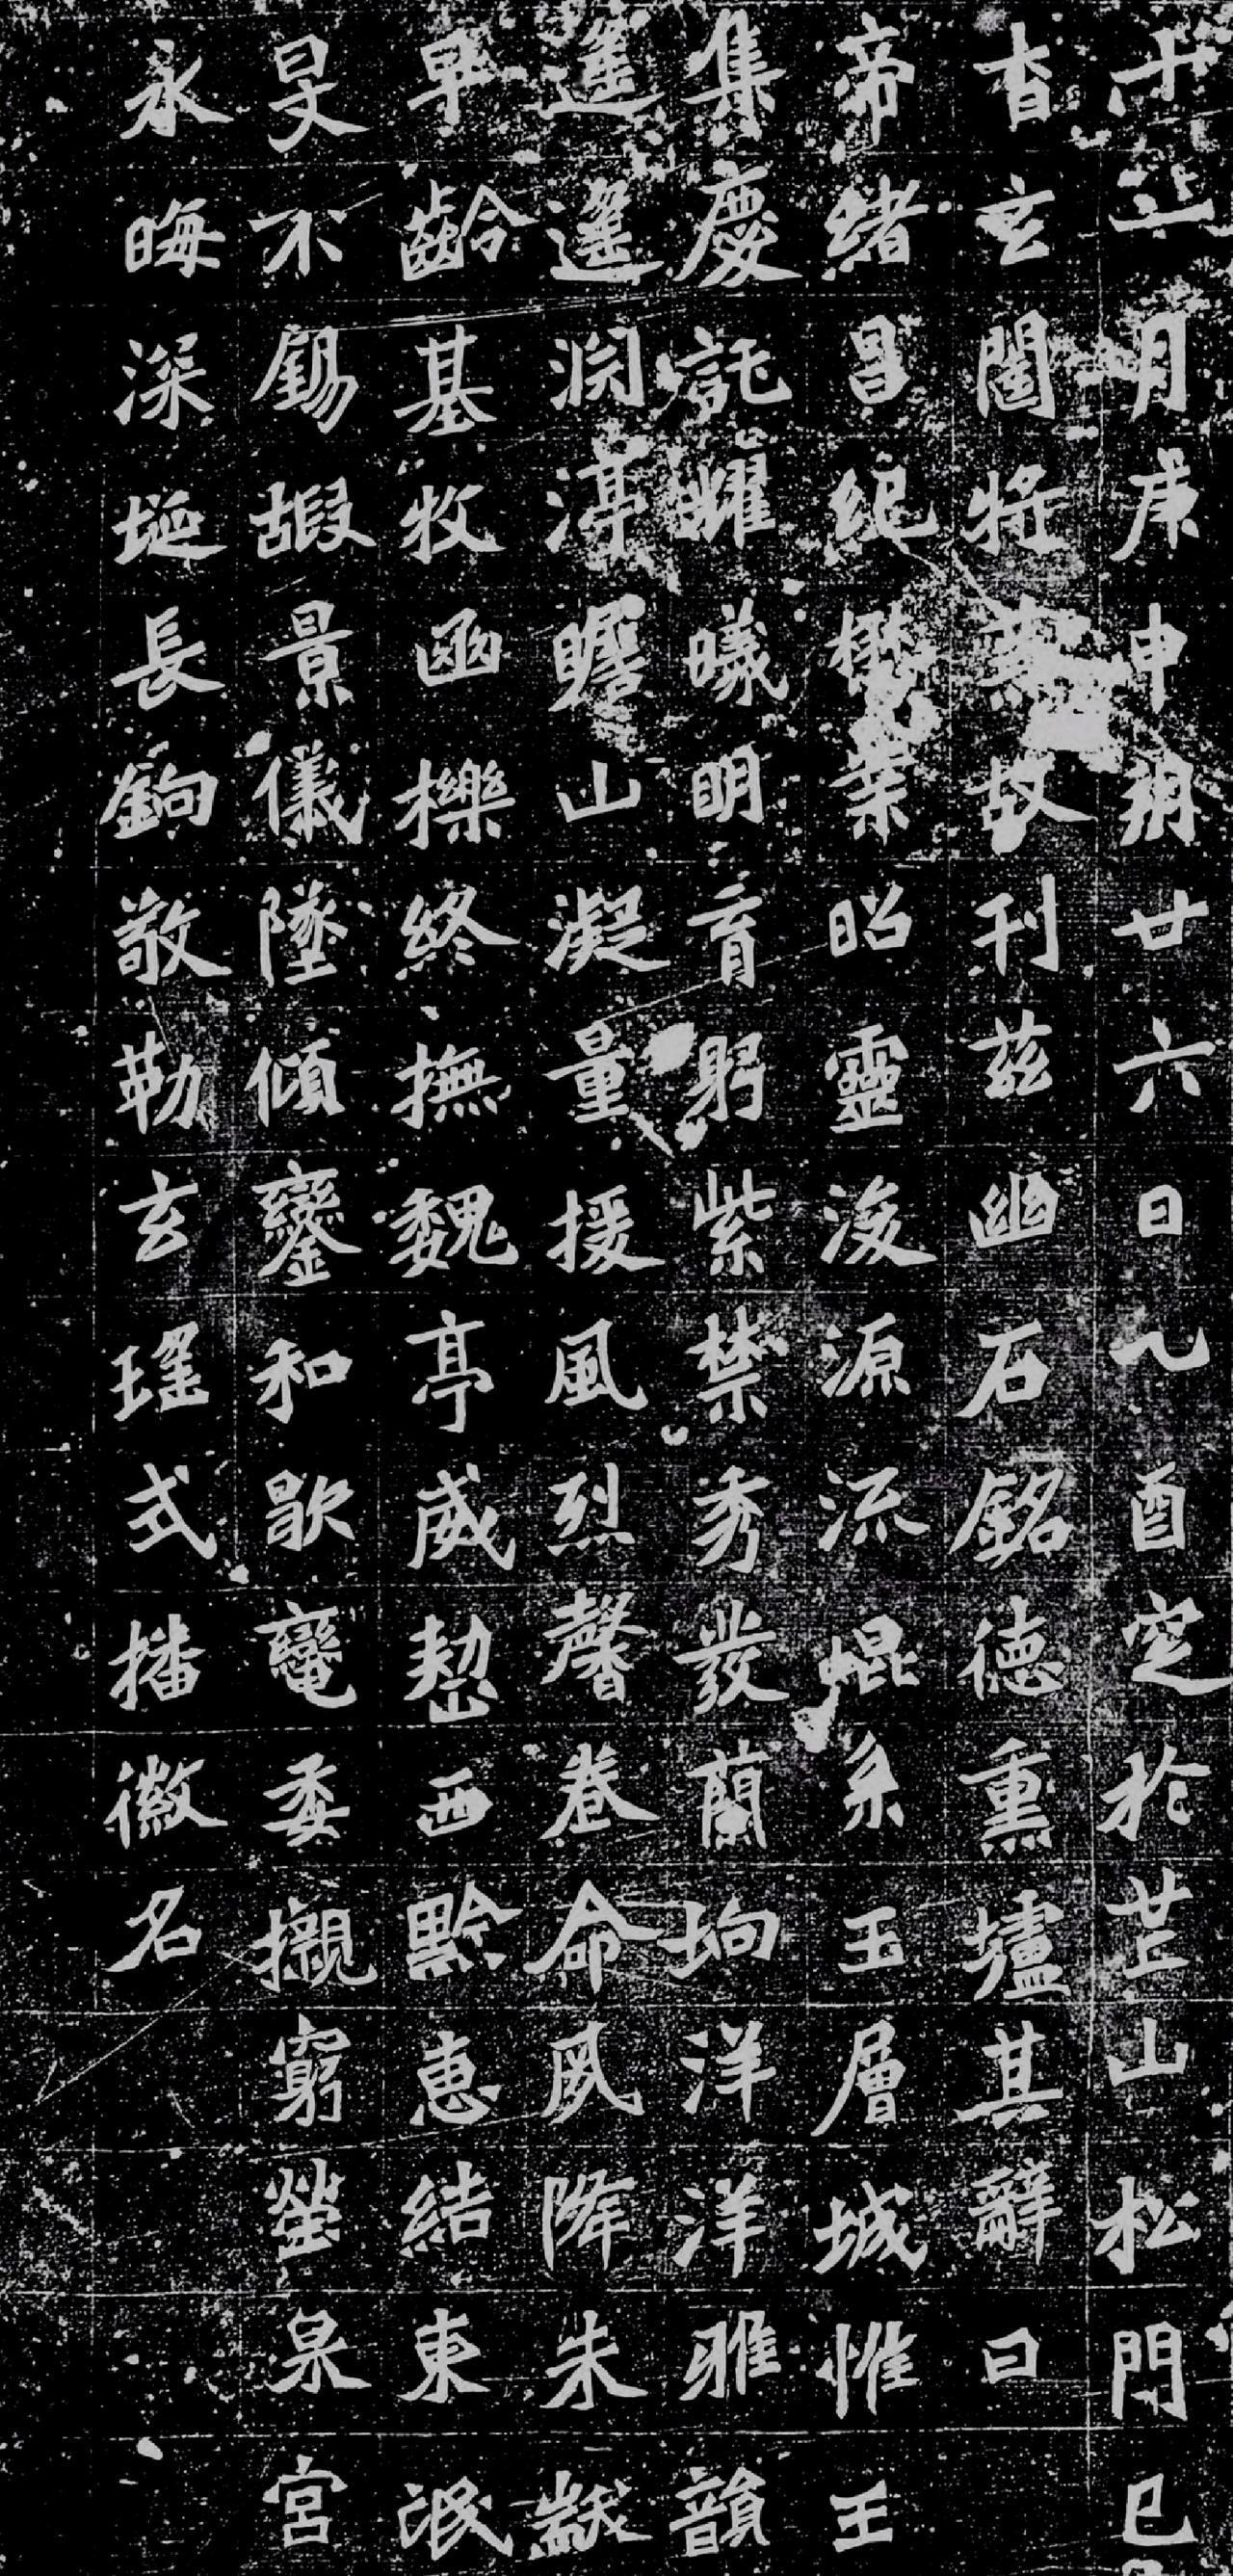 十一月庚申朔廿六日乙酉窆於芷山松門已
杳玄闥將蕪故刊兹幽石銘德熏壚其辭曰
帝緒昌紀懋業昭靈浚源流崐系玉層城惟王
集慶託耀曦明育躬紫禁秀發蘭坰洋洋雅韻
遙遙淵渟瞻山凝量援風烈馨卷命夙降朱黻
早齡基牧函櫟終撫魏亭威愸西黔惠結東氓
旻不錫嘏景儀墜傾鑾和歇鑣委櫬窮塋泉宮
永晦深埏長銄敬勒玄瑤式播徽名